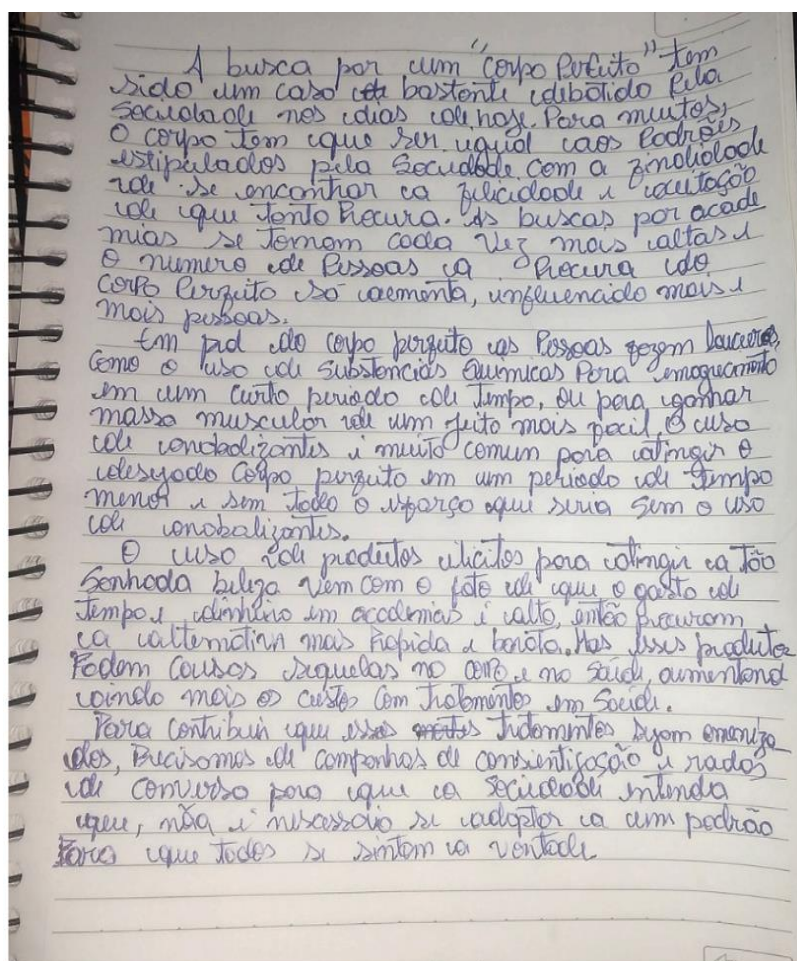 A busca por um "corpo Perfeito" tem
sido um caso bastante debatido Pela
Sociedade nos dias de hoje. Para muitos,
O corpo tem que ser igual aos Padrões
estipulados pela Sociedade, com a findidade
de se encontrar a felicidade e aceitação
de que tanto Precura. As buscas por acade
mias se tornam cada vez mais altas e
O numero de Pessoas a Precura do
corpo Perfeito só aementa, influenciado mais e
mais pessoas.
Em prol do corpo perfeito as Pessoas fazem loucuras,
Como o uso de Substancias Quimicas Para emagrecimento
em um curto periodo de tempo, ou para ganhar
massa muscular de um jeito mais facil, O uso
de anabolizantes é muito comum para atingir o
desejado Corpo perfeito em um periodo de tempo
menor e sem todo o esforço que seria Sem o uso
de anabalizantes.
O uso de produtos ilicitos para atingir a tão
Sonhada beleza vem com o fato de que o gasto de
tempo e dinheiro em academias é alto, então procuram
a alternativa mas Rapida e barata. Mas esses produtos
Podem causos sequelas no corpo e no Saúde, aumentand
ainda mais os custos Com tratamentos em Saúde.
Para contribuir que esses tratamentos sejam ameniza
dos, Precisamos de campanhas de consientização e rados
de converso para que a Sociedade intenda
que, não é nescessario se adaptar a um padrão
Para que todos se sintam a vontade